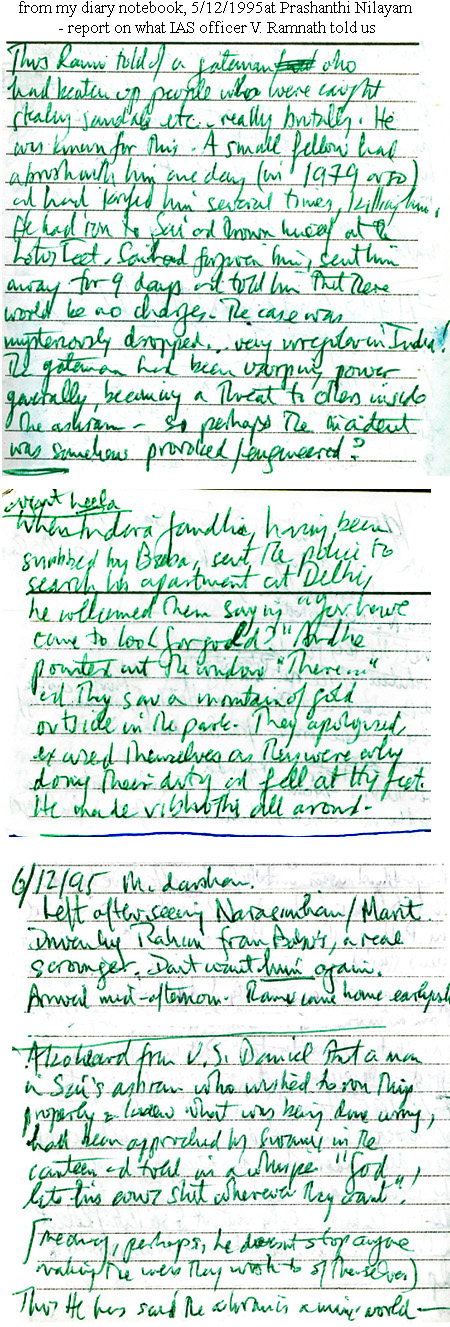 from my diary notebook, 5/12/1995at Prashanthi Nilayam
- report on what IAS officer V. Ramnath told us
This Rami told of a gateman who
had beaten up people who were caught
stealing sandals etc. really brutally. He
was known for this. A small fellow had
a brush with him one day (in 1979 or so)
and had him several times, killing him.
He had run to Sai and thrown himself at the
Lotus Feet. Sai had forgiven him, sent him
away for 9 days and told him that there
would be no charges. The case was
mysteriously dropped.. very irregular in India!
The gateman had been usurping power
generally, becoming a threat to others inside
the ashram - so perhaps the incident
was somehow provoked/engineered?
leela
When Indira Gandhi, having been
snubbed by Baba, sent the police to
search his apartment at Delhi,
he welcomed them saying "You have
come to look for gold?" And he
pointed out the window "There..."
and they saw a mountain of gold
outside in the park. They apologised,
excused themselves as they were only
doing their duty and fell at His feet.
He made vibhuthi all around.
6/12/95 M. darshan.
Left after seeing Narasimhan/Marit
Driven by from, a real
scrounger. Don't want him again.
Arrival mid-afternoon. came home
Also heard from V.S. Daniel that a man
in Sai's ashram who wished to run things
properly & knew what was being done wrong,
had been approached by Swami in the
canteen and told in a whisper "God
lets his shit wherever they want".
(meaning, perhaps, he doesn't stop anyone
making the they wish to of themselves)
Thus He has said the ashram is a mini-world —